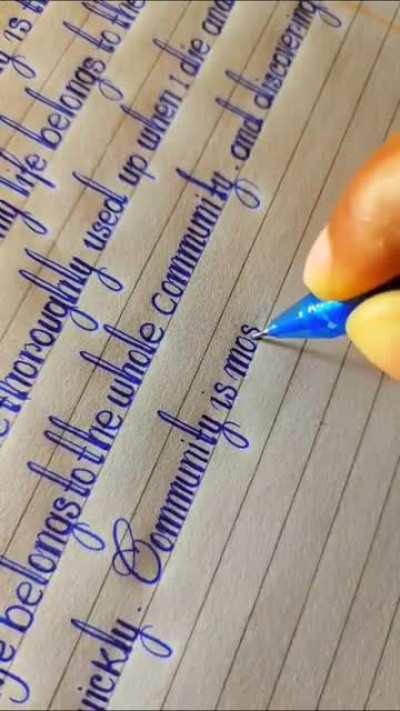 is
life belongs to the
thoroughly used up when ı die and
belongs to the whole community. and discovering
uickly. Community ıs mos